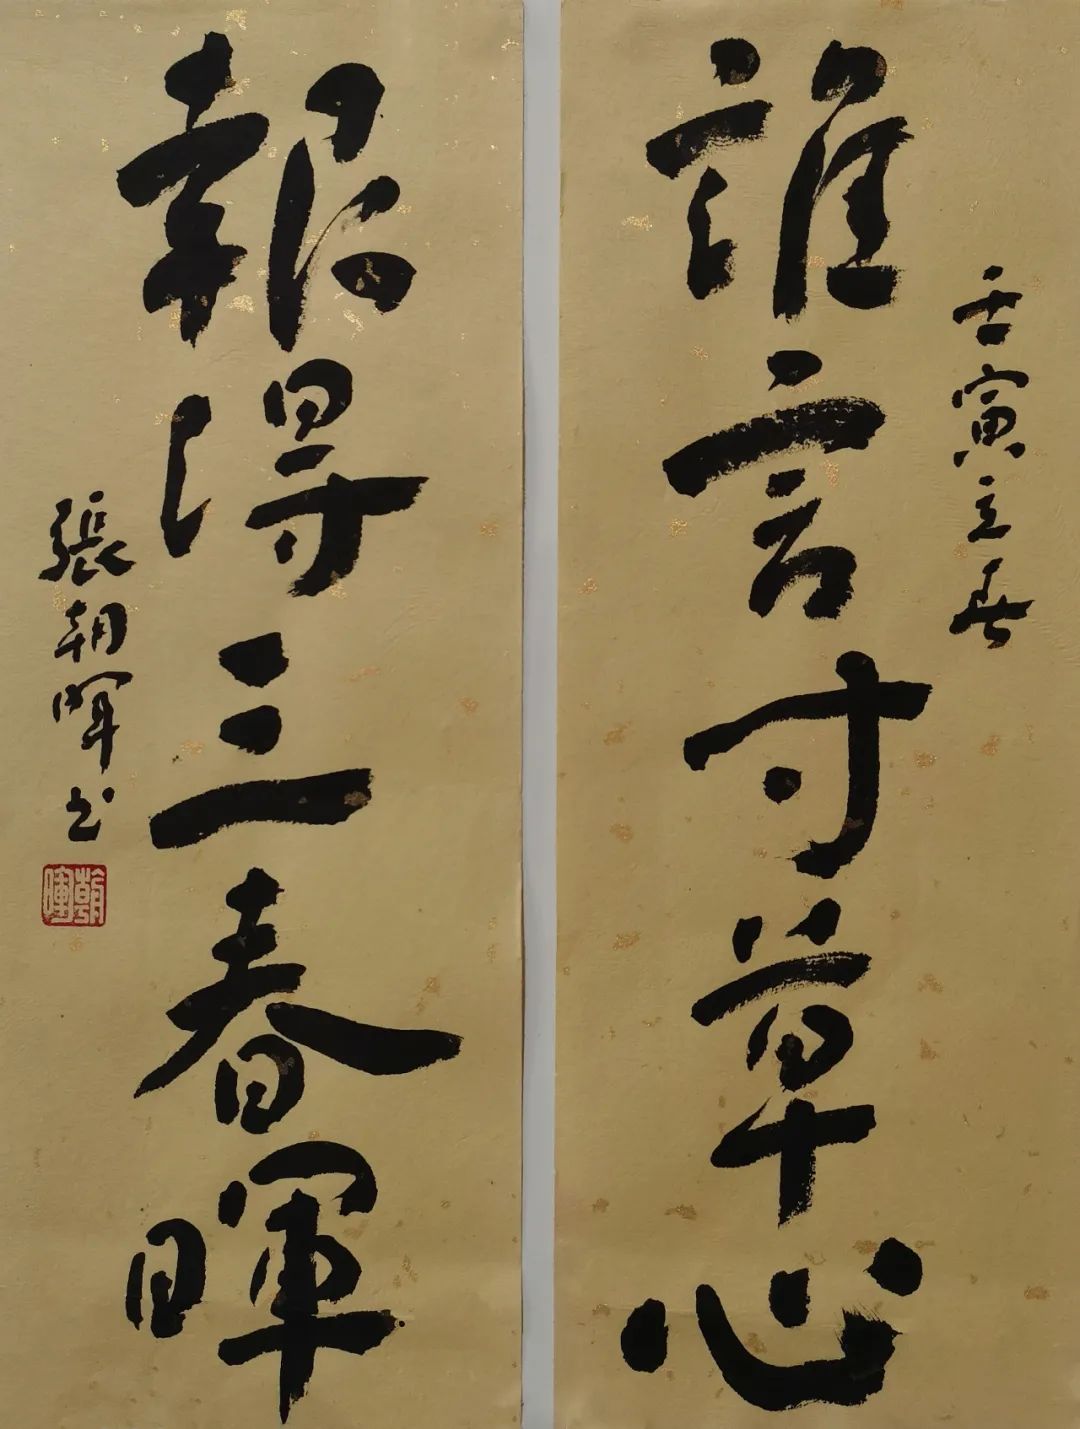 壬寅立春
誰言寸草心
報得三春暉
張朝暉书
朝暉